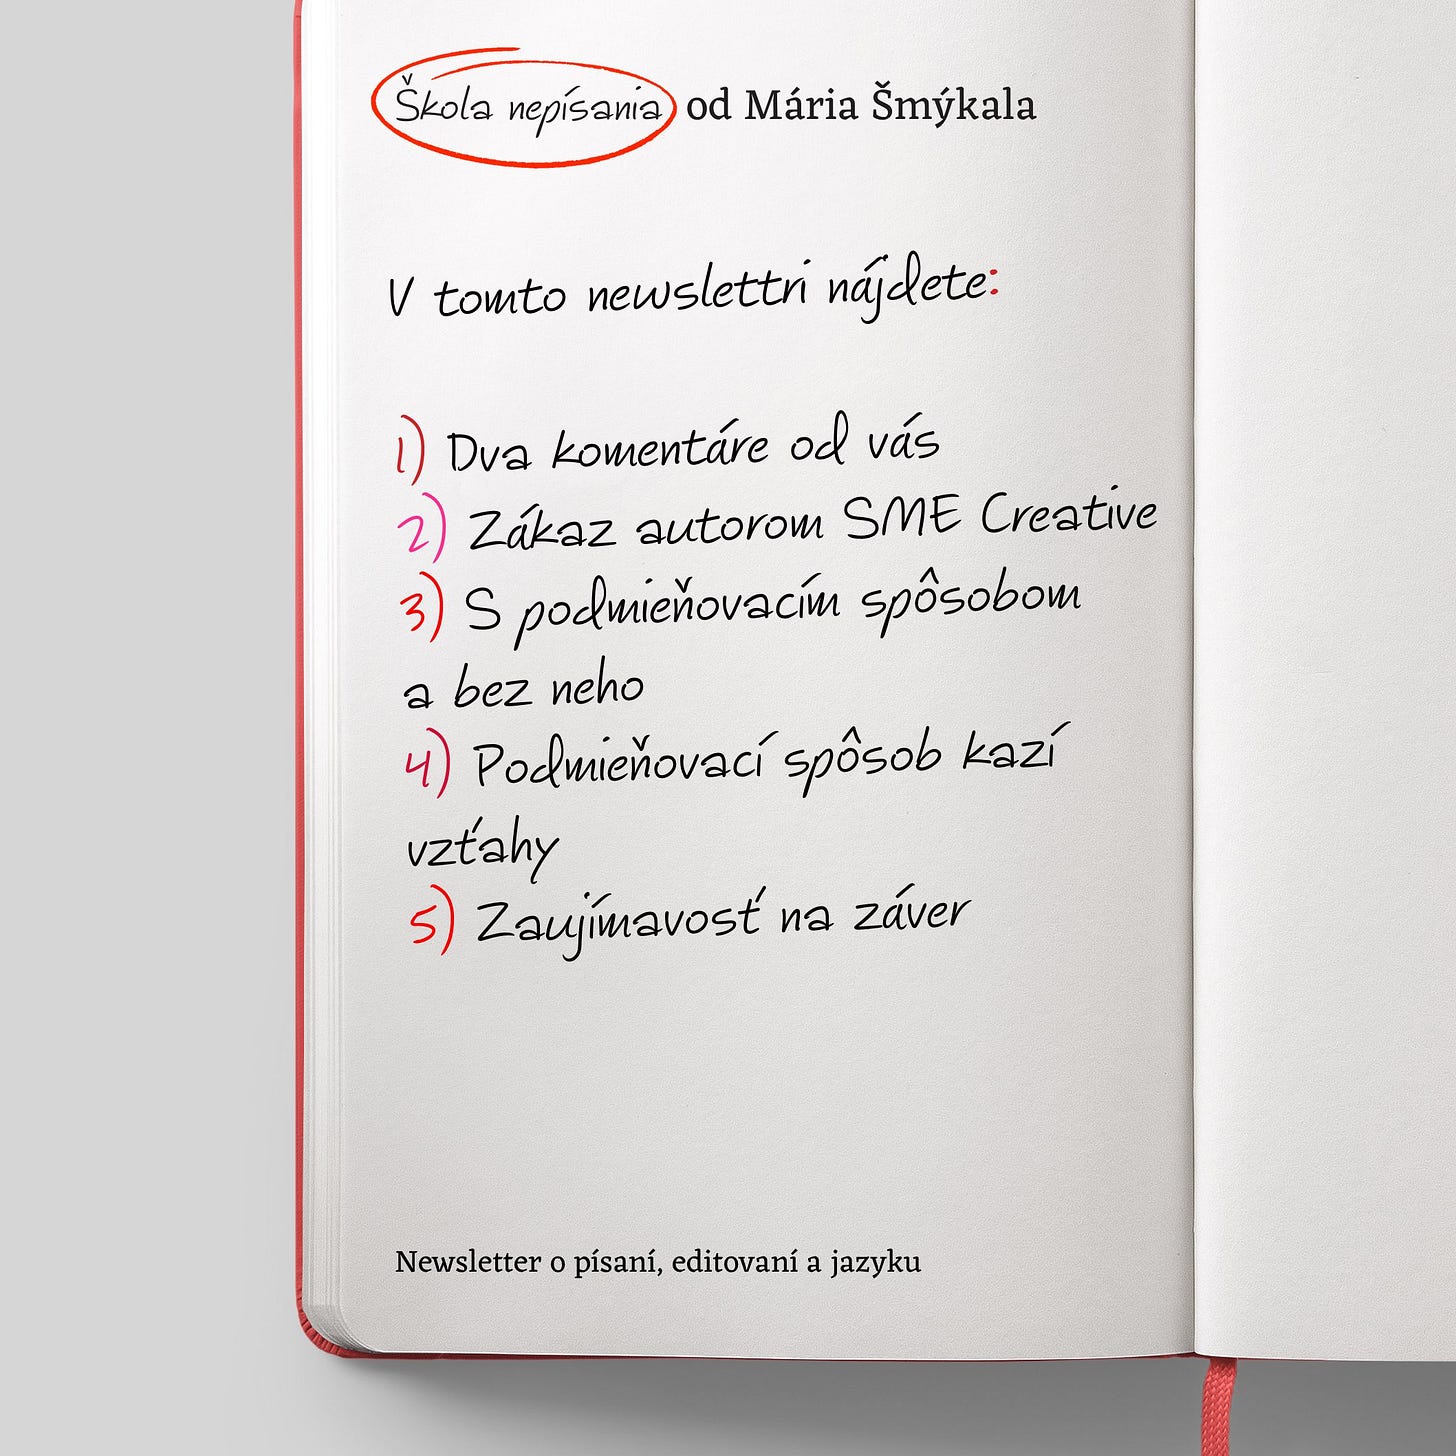 Škola nepísania od Mária Šmýkala
V tomto newslettri nájdete:
1) Dva komentáre od vás
2) Zákaz autorom SME Creative
3) S podmieňovacím spôsobom
a bez neho
4) Podmieňovací spôsob kazí
vzťahy
5) Zaujímavosť na záver
Newsletter o písaní, editovaní a jazyku